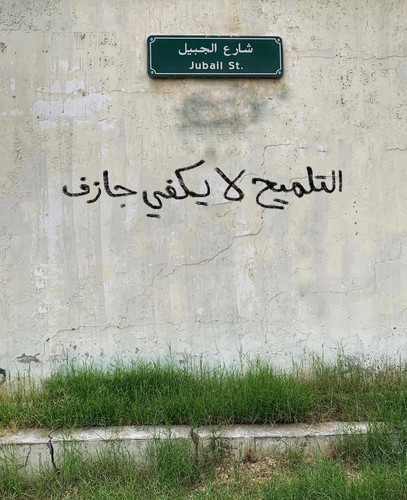 شارع الجبيل
Jubail St.
التلميح لا يكفي جازف